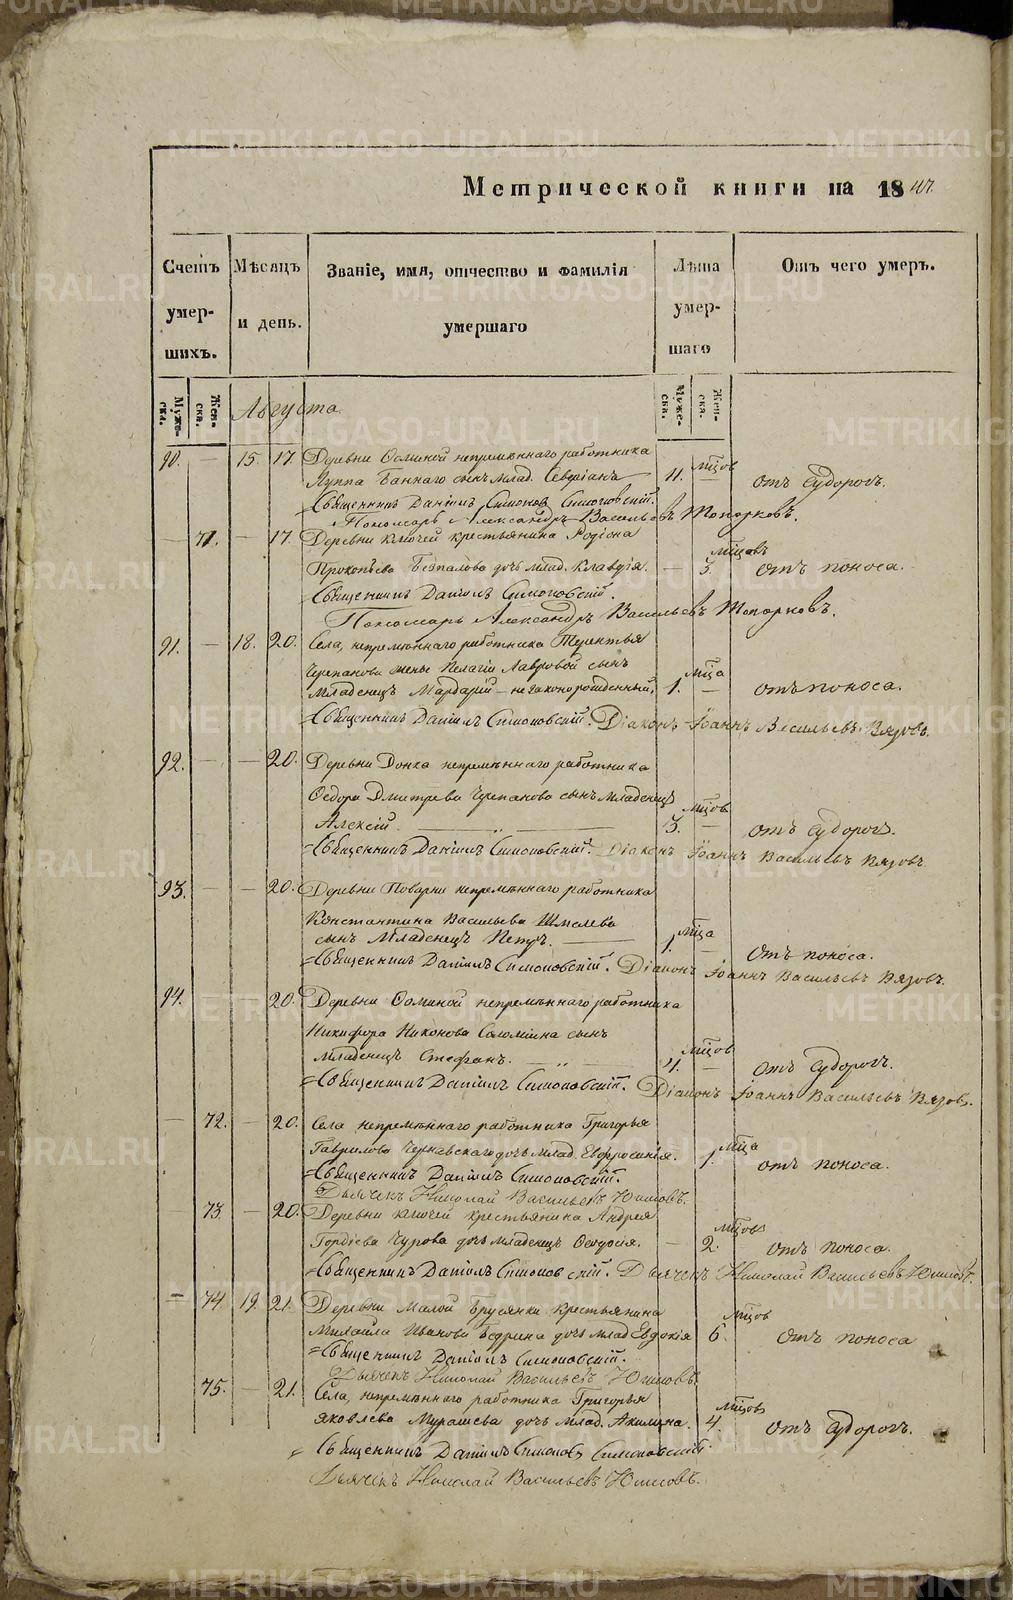 Метрической книги на 18
Счетъ умер- шихъ.
Мѣсяцъ и день.
Званіе, имя, отчество и фамилія умершаго
Лѣта умер- шаго
Отъ чего умеръ.
Муже- ска.
Жен- ска.
Августа
Муже- ска.
Жен- ска.
90. — 15. 17. Деревни Осминой непремѣннаго работника
мѣсцов
Луппа Баннаго сынъ млад. Северіанъ — 11. — отъ судорогъ.
Священникъ Даніилъ Симонов Симоновскій.
Пономарь Александръ Васильевъ Топорковъ.
— 71. — 17. Деревни Ключей крестьянина Родіона
мѣсцовъ
Прокопьева Безпалова дочь млад. Клавдія. — 3. отъ поноса.
Священникъ Даніилъ Симоновскій.
Пономарь Александръ Васильевъ Топорковъ.
91. — 18. 20. Села, непремѣннаго работника Терентья
Черепанова жены Пелагіи Лавровой сынъ
мѣсца
Младенецъ Мардарій — незаконорожденный. 1. — отъ поноса.
Священникъ Даніилъ Симоновскій. Діаконъ Іоаннъ Васильевъ Вязовъ.
92. — — 20. Деревни Донка непремѣннаго работника
Ѳедора Дмитрева Черепанова сынъ младенецъ
мѣсцов
Алексій. 3. — отъ судорогъ.
Священникъ Даніилъ Симоновскій. Діаконъ Іоаннъ Васильевъ Вязовъ
93. — — 20. Деревни Поварни непремѣннаго работника
Константина Васильева Шмелева
мѣсца
сынъ Младенецъ Петръ. — 1. — отъ поноса.
Священникъ Даніилъ Симоновскій. Діаконъ Іоаннъ Васильевъ Вязовъ.
94. — — 20. Деревни Осминой непремѣннаго работника
Никифора Никонова Соломеина сынъ
мѣсцов
Младенецъ Стефанъ. 4. — отъ судорогъ.
Священникъ Даніилъ Симоновскій. Діаконъ Іоаннъ Васильевъ Вязовъ.
— 72. — 20. Села непремѣннаго работника Григорья
мѣсца
Гаврилова Чернавскаго дочь млад. Евфросинія. 1. отъ поноса.
Священникъ Даніилъ Симоновскій.
Дьячекъ Николай Васильевъ
— 73. — 20. Деревни Ключей крестьянина Андрея
мѣсцов
Гордіева Чурова дочь младенецъ Ѳеодосія. — 2. отъ поноса.
Священникъ Даніилъ Симоновскій. Дьячекъ Николай Васильевъ
— 74. 19. 21. Деревни Малой Брусянки крестьянина
мѣсцов
Михайла Иванова Бедрина дочь млад Евдокія 6. отъ поноса
Священникъ Даніилъ Симоновскій.
Дьячекъ Николай Васильевъ
75. — 21. Села, непремѣннаго работника Григорья
мѣсцов
Яковлева Мурашева дочь млад. Акилина. 4. отъ судорогъ.
Священникъ Даніилъ Симонов Симоновскій.
Дьячекъ Николай Васильевъ
METRIKI.GASO-URAL.RU